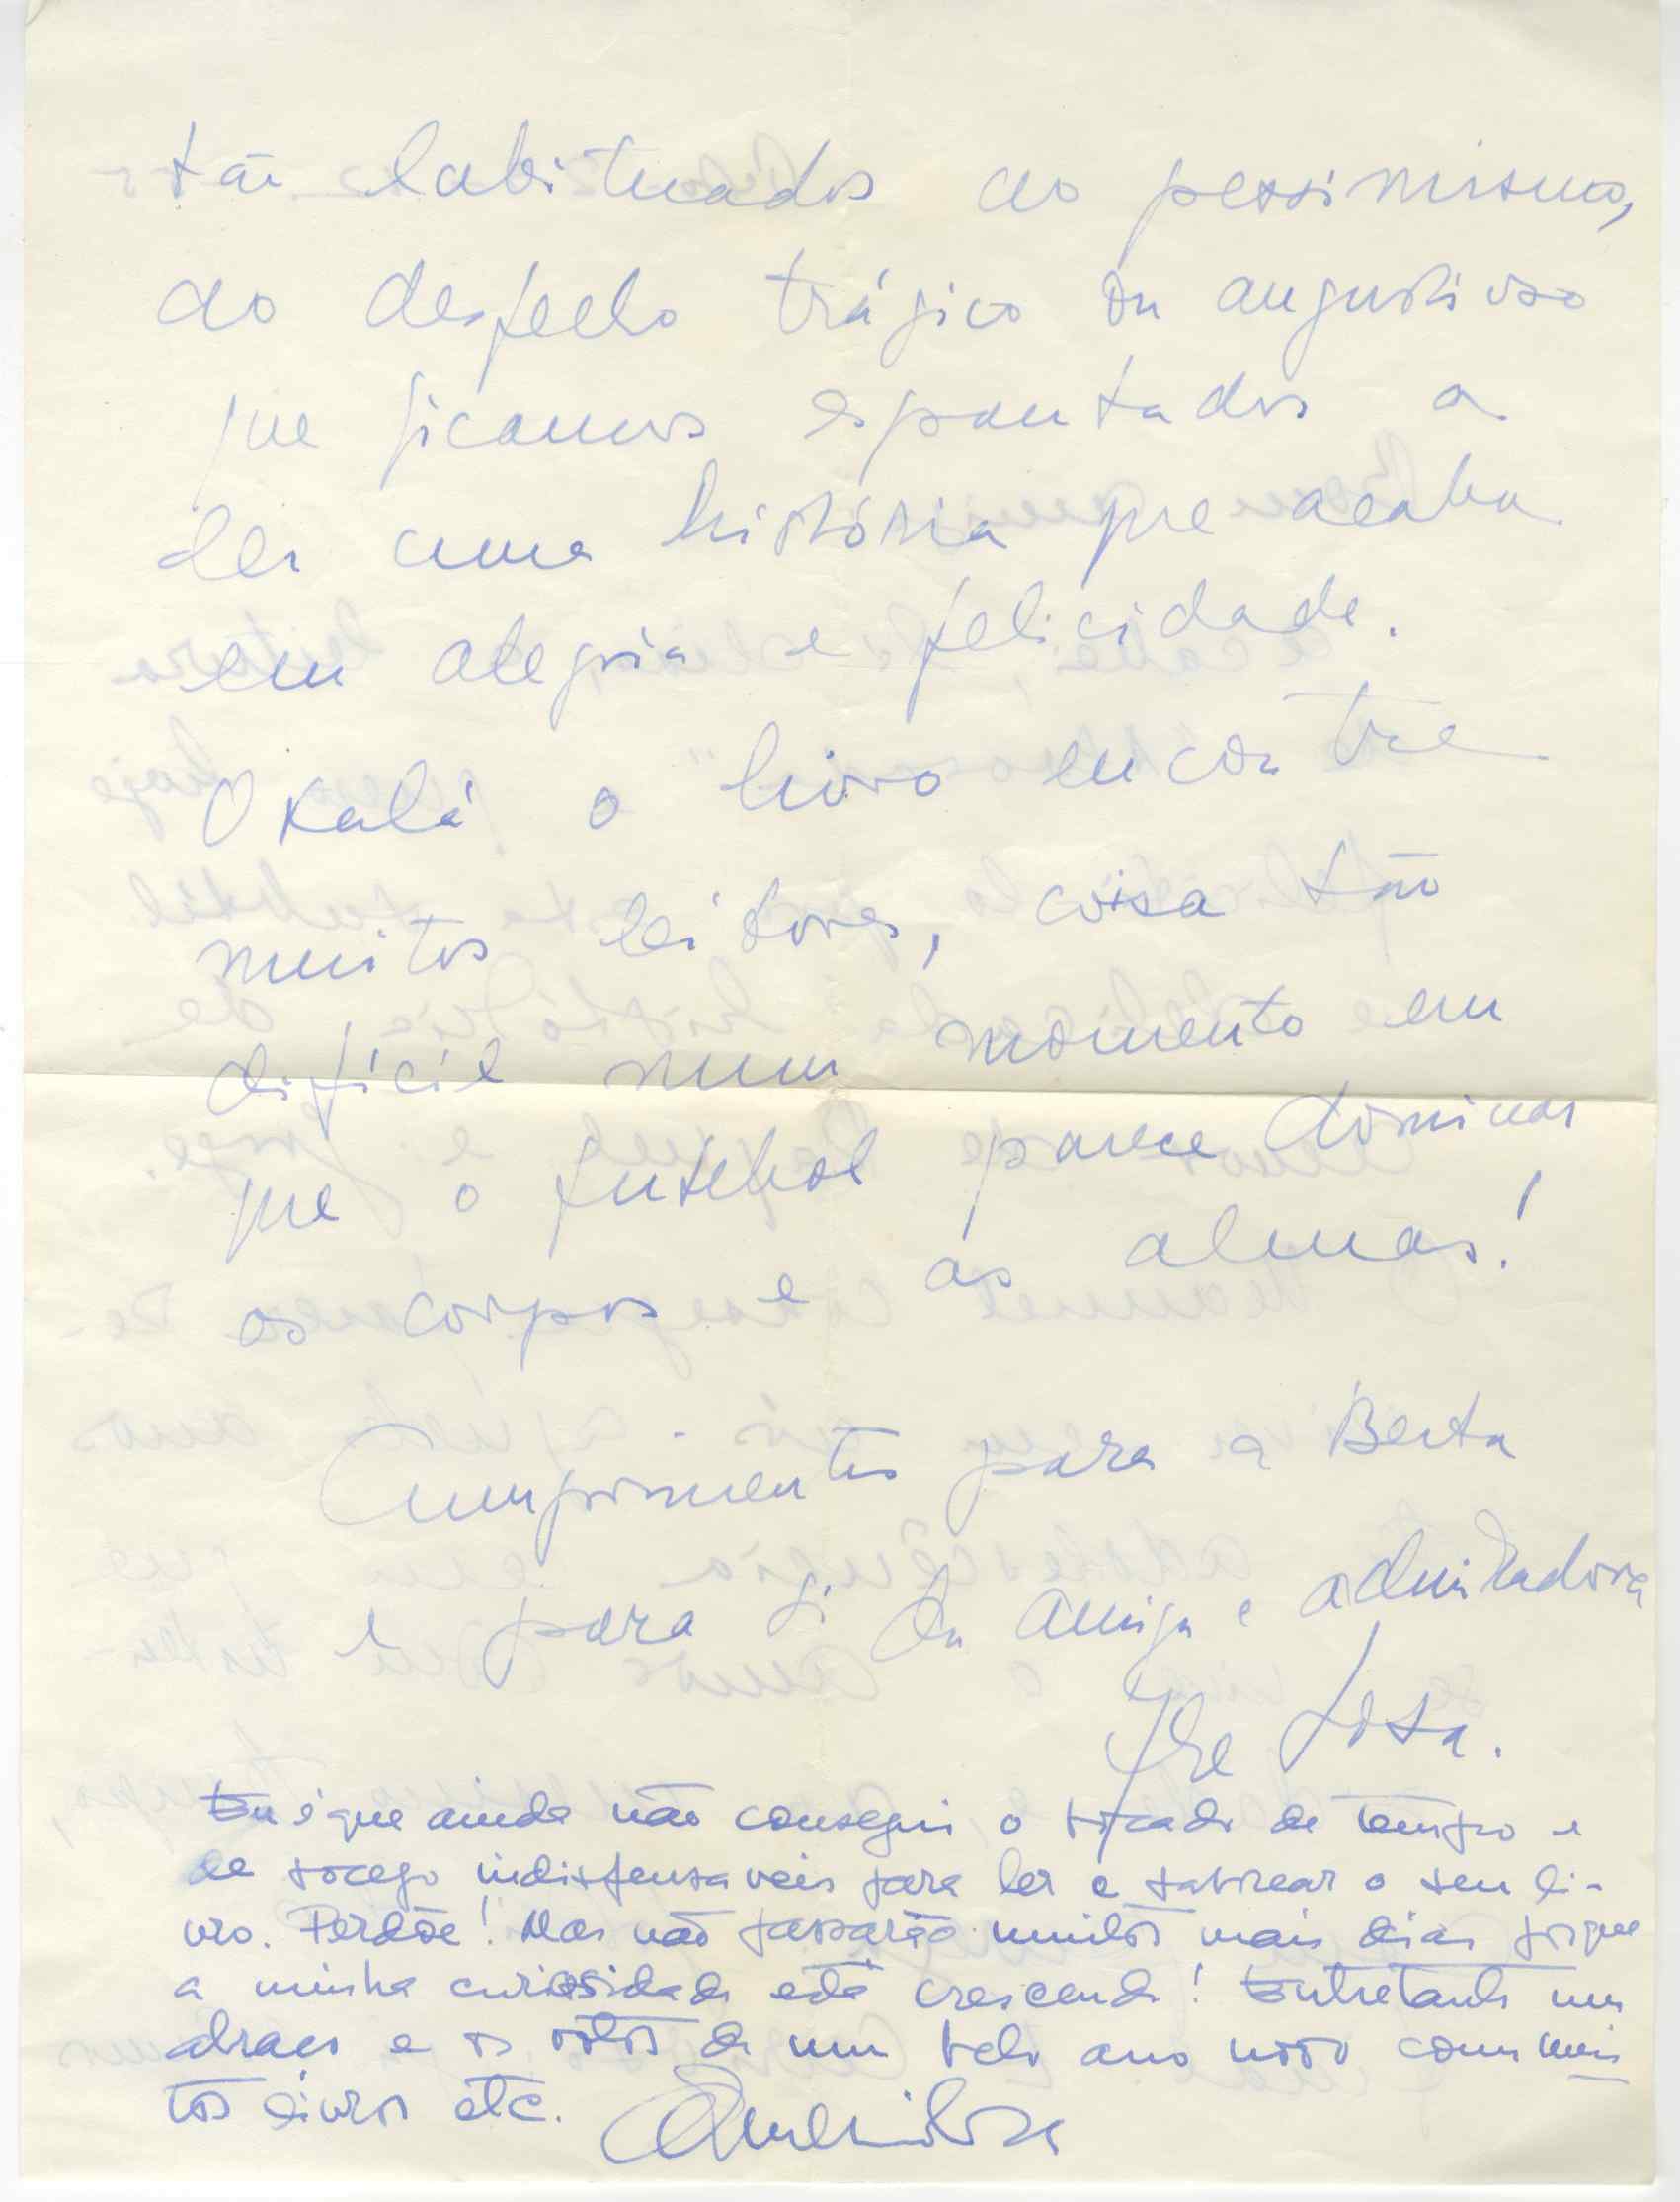 tão habituados ao pessimismo,
ao desfecho trágico ou angustioso
que ficamos espantados a
ler uma história que acaba
em alegria e felicidade.
Oxalá o livro encontre
muitos leitores, coisa tão
difícil num momento em
que o futebol parece dominar
os corpos e as almas!
Cumprimentos para a Berta
e para si da amiga e admiradora
Ilse Losa.
Eu é que ainda não consegui o bocado de tempo e
de socego indispensaveis para ler e saborear o seu li-
vro. Perdõe! Mas não passarão muitos mais dias porque
a minha curiosidade está crescendo! Entretanto um
abraço e os votos de um belo ano novo com mui
tos livros etc.